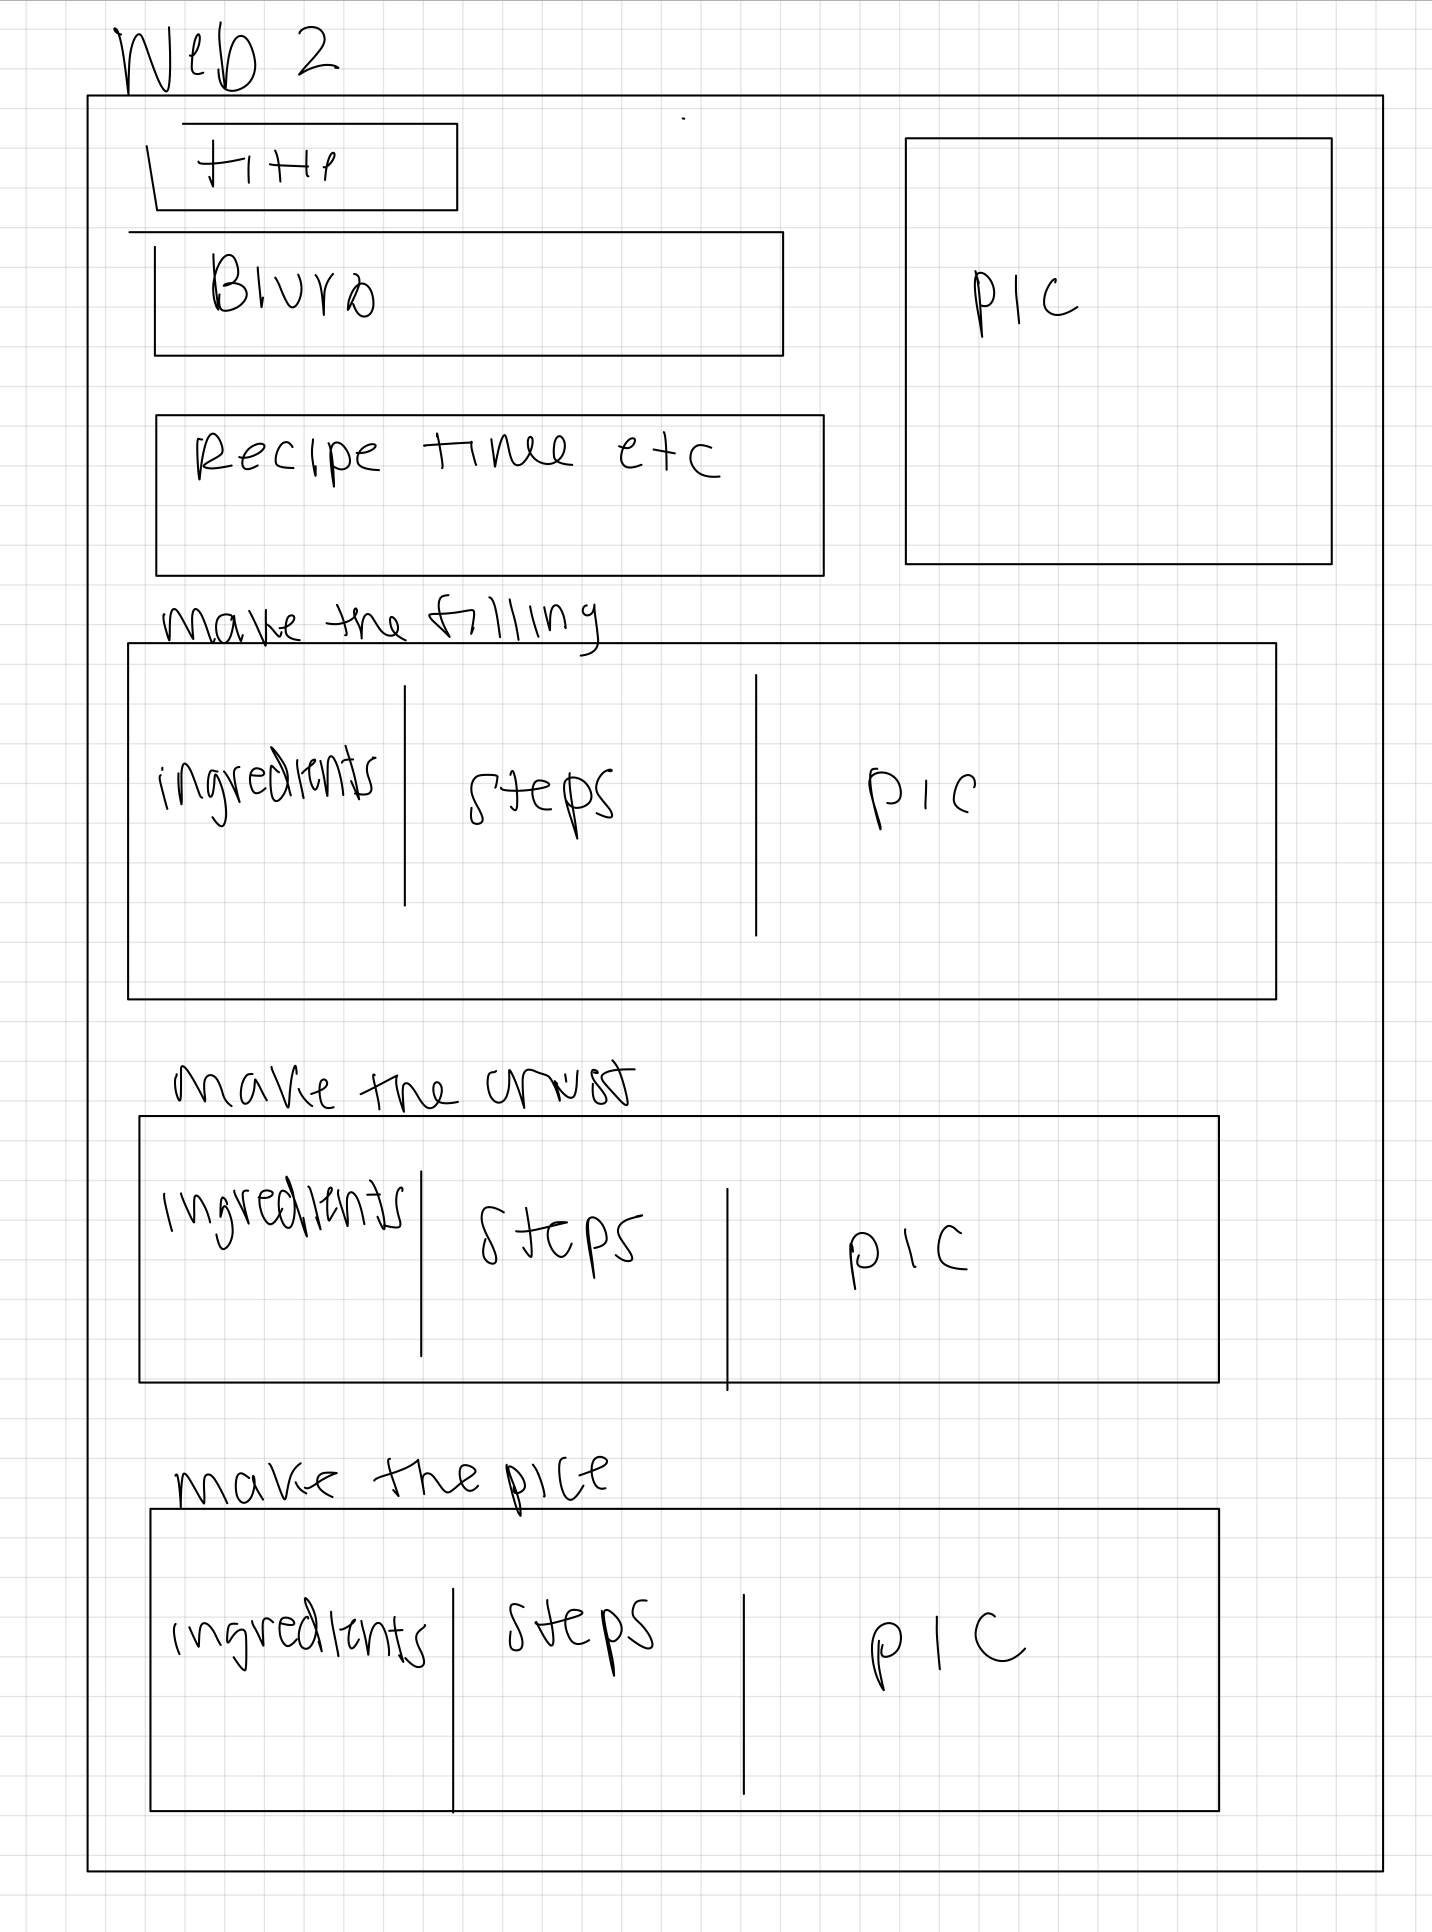 Web 2
title
Blurb
pic
Recipe time etc
make the filling
ingredients
steps
pic
make the crust
ingredients
steps
pic
make the pice
ingredients
steps
pic